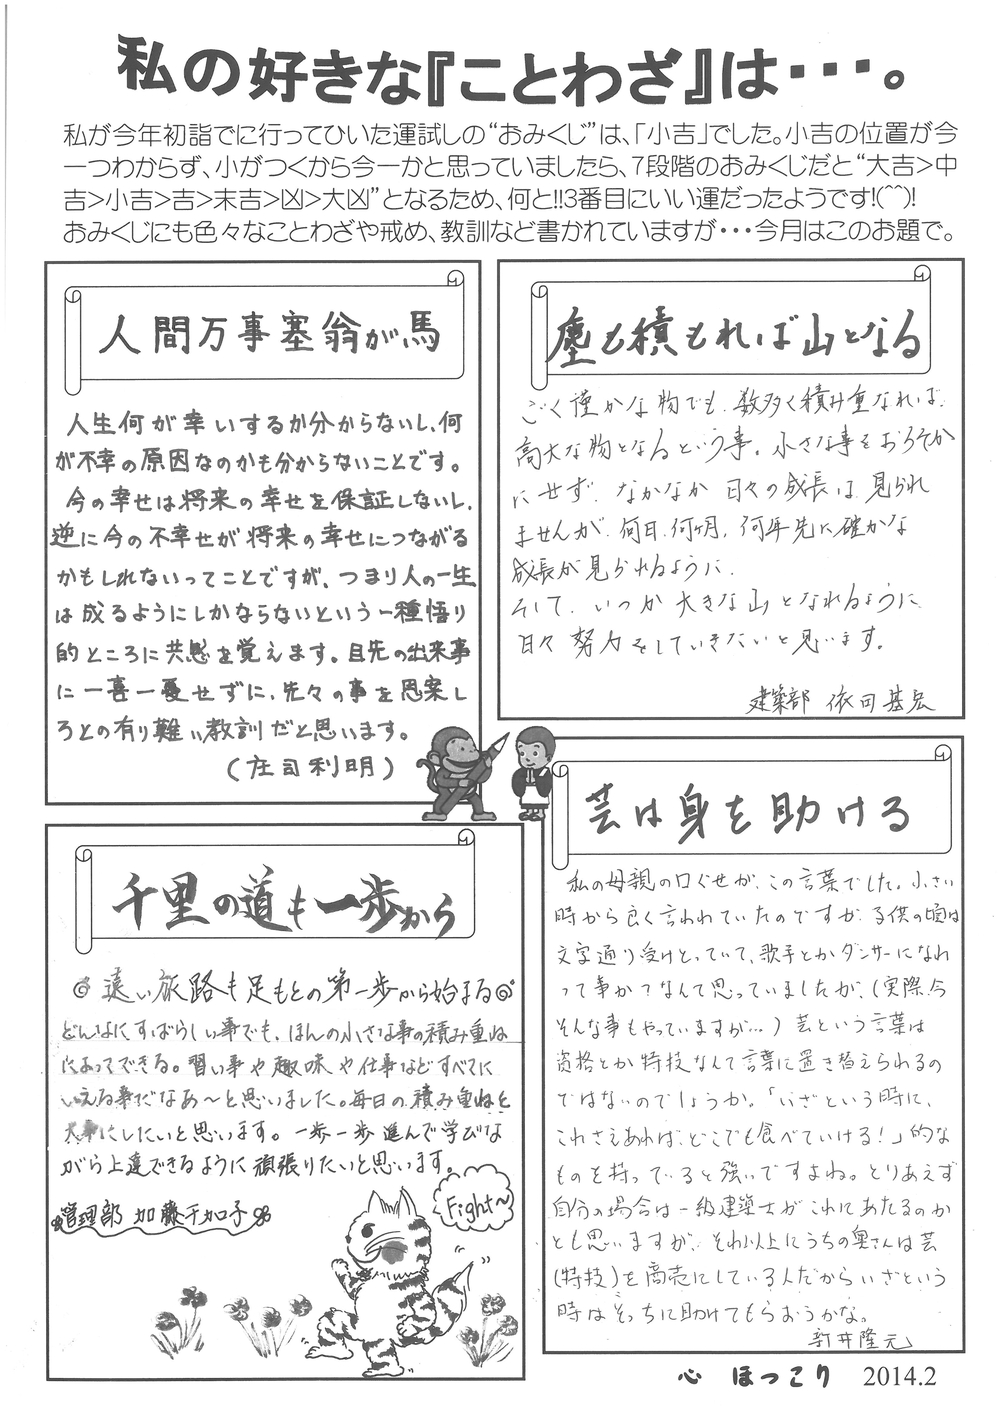 私の好きな『ことわざ』は・・・。
私が今年初詣でに行ってひいた運試しの“おみくじ”は、「小吉」でした。小吉の位置が今
一つわからず、小がつくから今一かと思っていましたら、7段階のおみくじだと“大吉>中
吉>小吉>吉>末吉>凶>大凶”となるため、何と!!3番目にいい運だったようです!(^^)!
おみくじにも色々なことわざや戒め、教訓など書かれていますが・・・今月はこのお題で。
人間万事塞翁が馬
人生何が幸いするか分からないし、何
が不幸の原因なのかも分からないことです。
今の幸せは将来の幸せを保証しないし、
逆に今の不幸せが将来の幸せにつながる
かもしれないってことですが、つまり人の一生
は成るようにしかならないという一種悟り
的ところに共感を覚えます。目先の出来事
に一喜一憂せずに、先々の事を思案し
ろとの有り難い教訓だと思います。
(庄司利明)
塵も積もれば山となる
ごく僅かな物でも、数多く積み重なれば、
高大な物となるという事。小さな事をおろそか
にせず、なかなか日々の成長は見られ
ませんが、何日、何ヶ月、何年先に確かな
成長が見られるように、
そして、いつか大きな山となれるように
日々努力をしていきたいと思います。
建築部 依田基宏
千里の道も一歩から
遠い旅路も足もとの第一歩から始まる
どんなにすばらしい事でも、ほんの小さな事の積み重ね
によってできる。習い事や趣味や仕事などすべてに
いえる事だなあ～と思いました。毎日の積み重ねを
大事にしたいと思います。一歩一歩進んで学びな
がら上達できるように頑張りたいと思います。
管理部 加藤千加子
Fight～
芸は身を助ける
私の母親の口ぐせが、この言葉でした。小さい
時から良く言われていたのですが、子供の頃は
文字通り受けとっていて、歌手とかダンサーになれ
って事か？なんて思っていましたが、(実際、今
そんな事もやっていますが…)芸という言葉は
資格とか特技なんて言葉に置き替えられるの
ではないのでしょうか。「いざという時に、
これさえあれば、どこでも食べていける！」的な
ものを持っていると強いですよね。とりあえず
自分の場合は一級建築士がこれにあたるのか
とも思いますが、それ以上にうちの奥さんは芸
(特技)を商売にしている人だからいざという
時はそっちに助けてもらおうかな。
新井隆元
心 ほっこり 2014.2